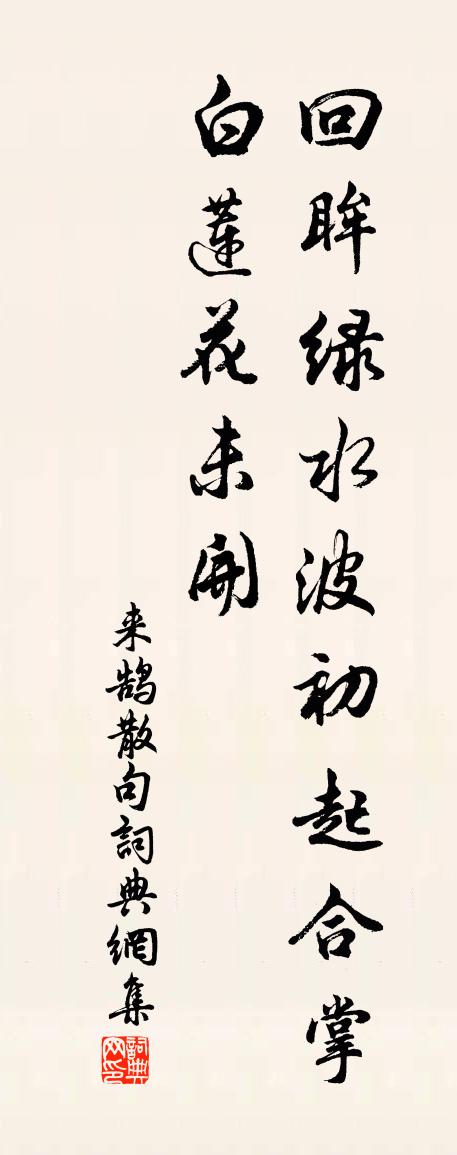 回眸绿水波初起合掌
白蓮花未開
来鹄散句詞典網集
詞典网印